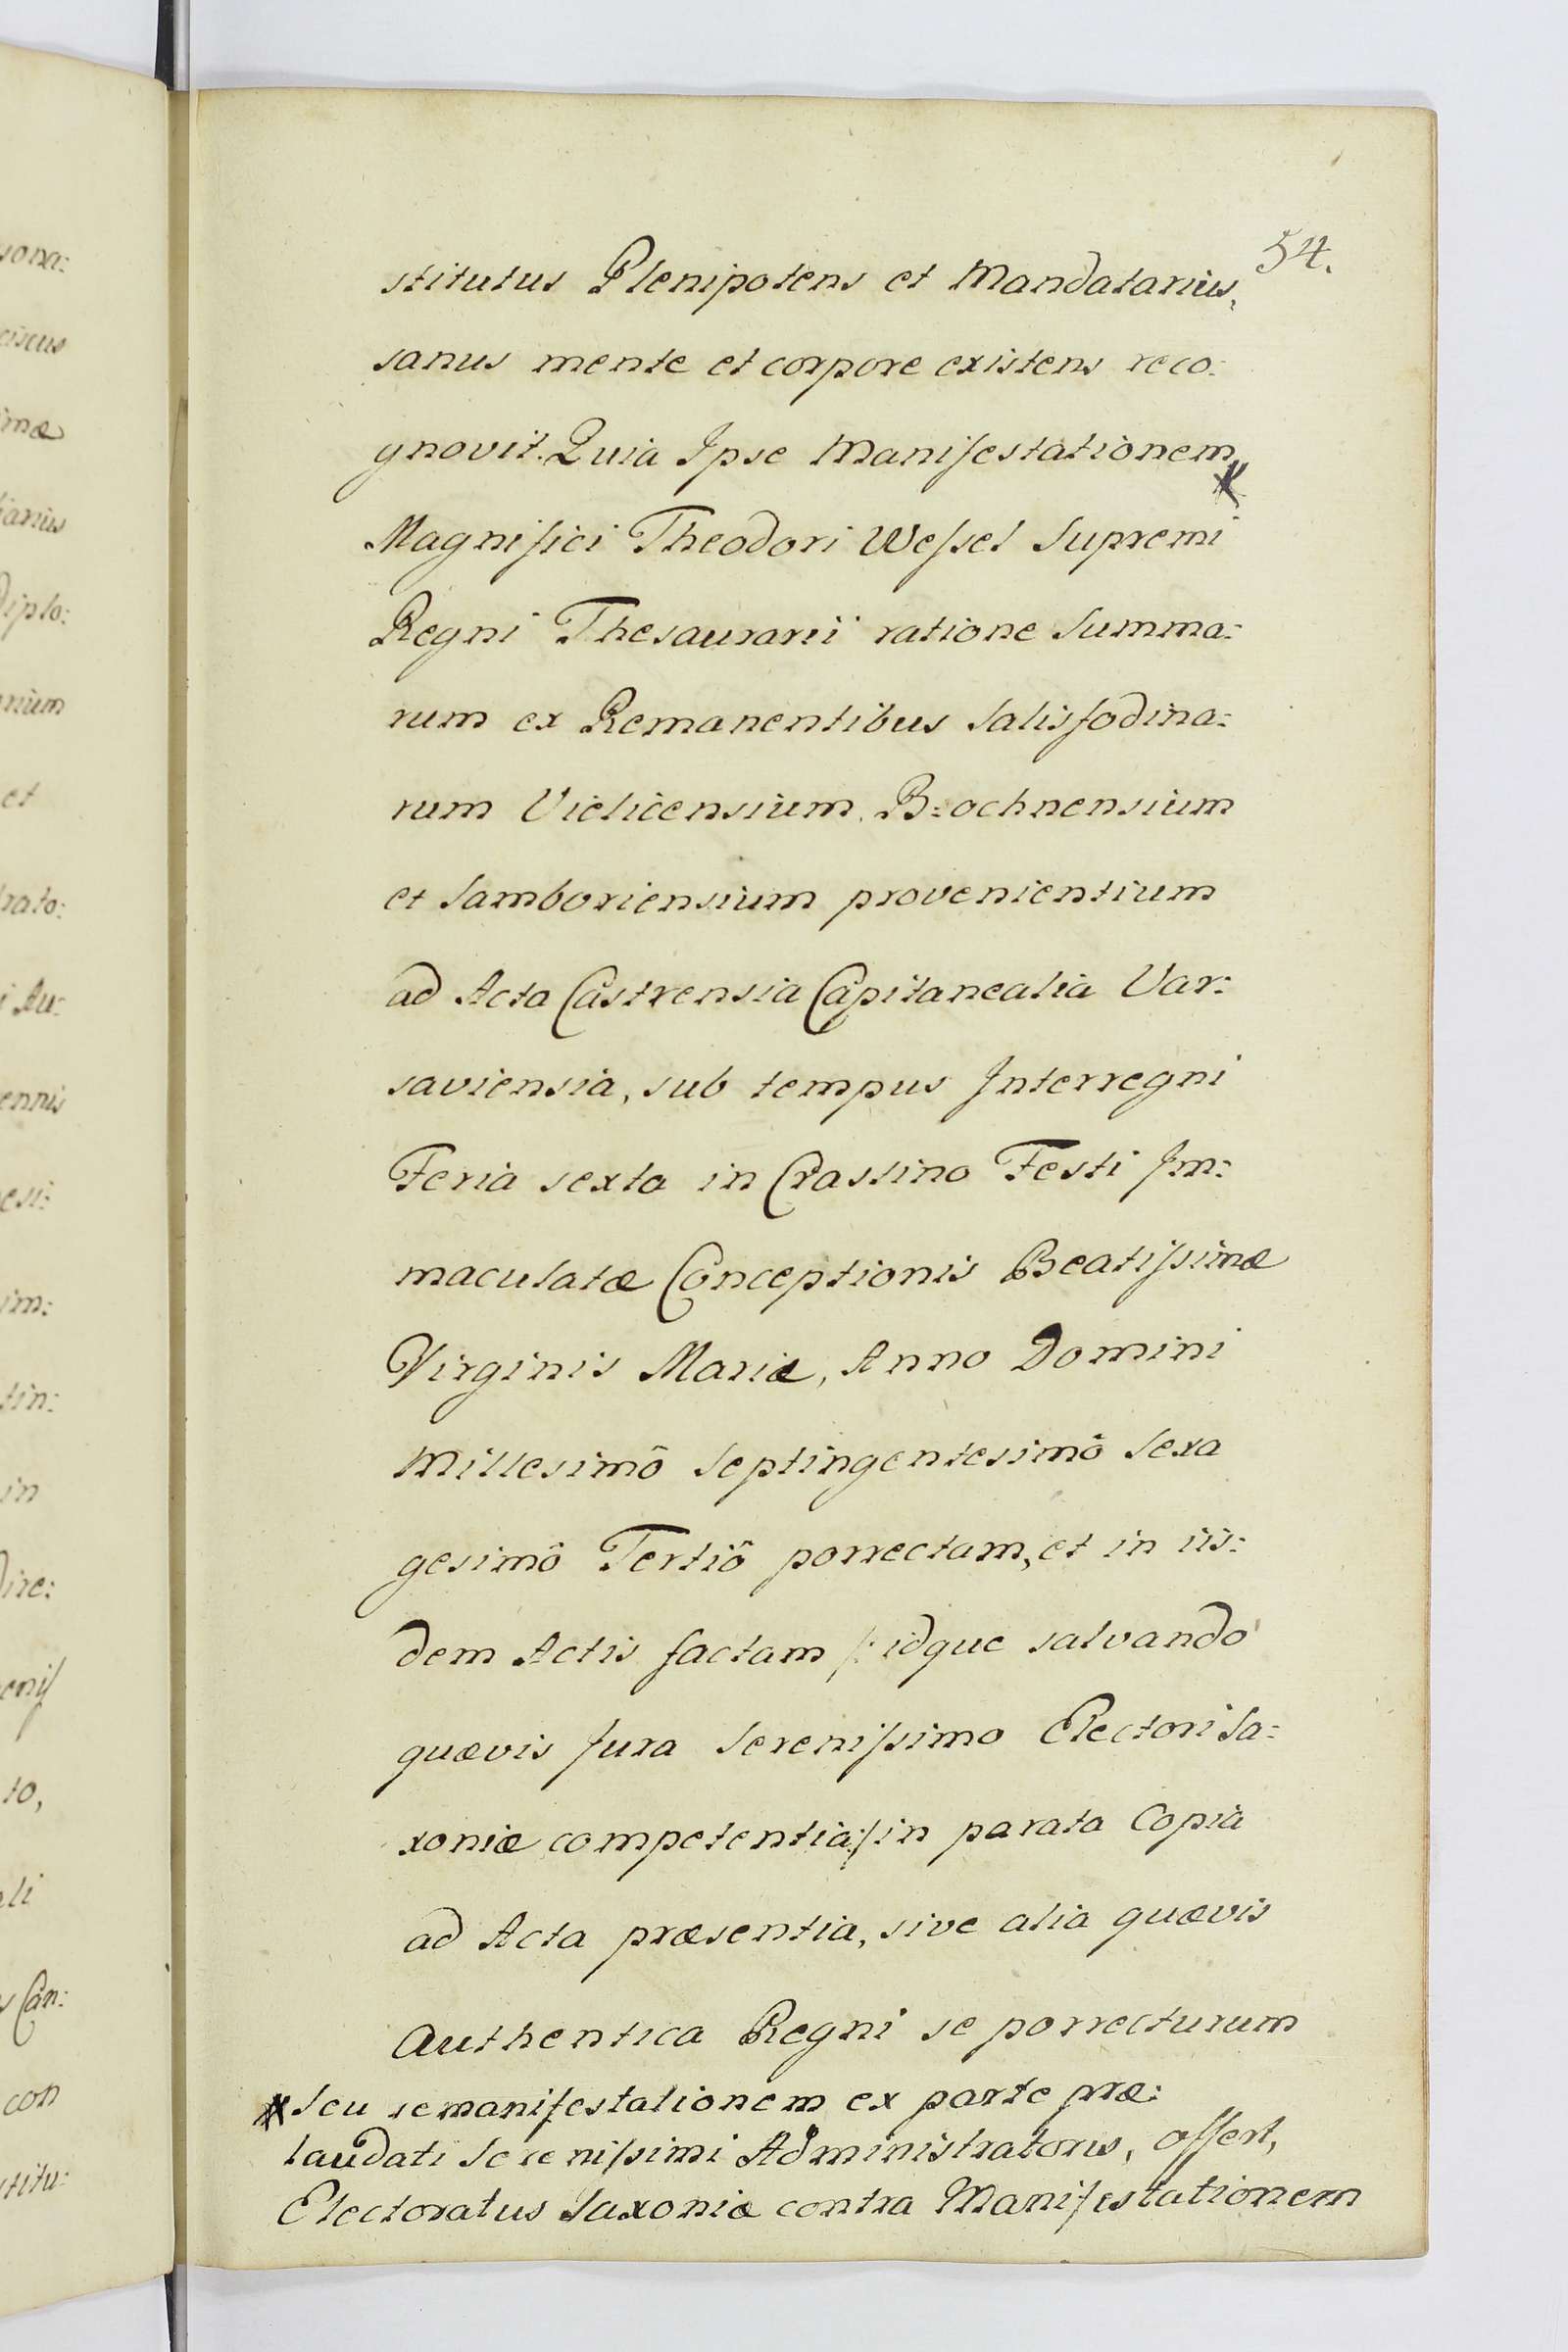 54.
stitutus Plenipotens et Mandatarius,
sanus mente et corpore existens reco:
gnovit. Quia Ipse Manifestationem *
Magnifici Theodori Wessel Supremi
Regni Thesaurarii ratione Summa:
rum ex Remanentibus Salisfodina:
rum Vielicensium, B:ochnensium
et Samboriensium provenientium
ad Acta Castrensia Capitanealia Var:
saviensia, sub tempus Interregni
Feria sexta in Crastino Festi Im:
maculatæ Conceptionis Beatissimæ
Virginis Mariæ, Anno Domini
Millesimô Septingentesimô Sexa
gesimô Tertiô porrectam, et in iis:
dem Actis factam /: idque salvando
quævis Jura Serenissimo Electori Sa:
xoniæ competentia :/ in parata Copia
ad Acta præsentia, sive alia quævis
Authentica Regni se porrecturum
* seu remanifestationem ex parte præ:
laudati Serenissimi Administratoris, offert,
Electoratus Saxoniæ contra Manifestationem
sona:
ciscus
imæ
Diplo:
et
i Au:
ennis
esi:
im:
tin:
in
Dire:
to,
con
titu: